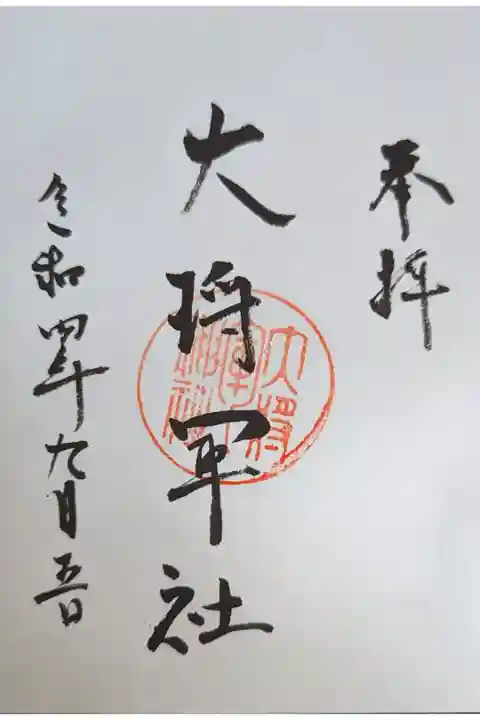 奉拝
大将軍社
令和四年九月五日